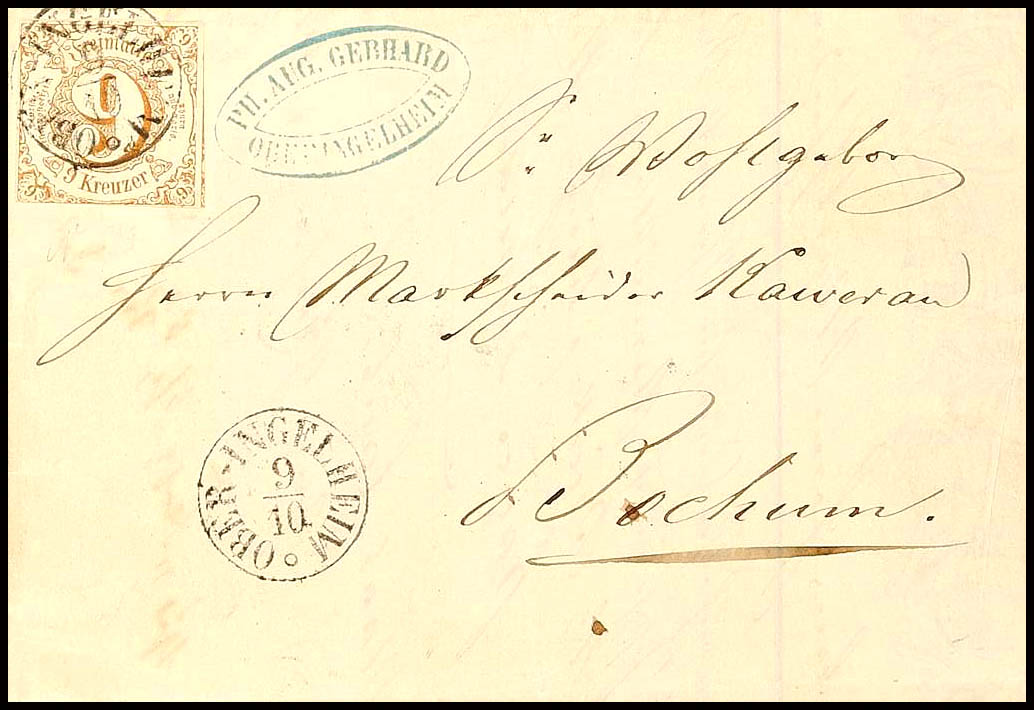 Freimarke
9
9 Kreuzer
OBER-INGELHEIM
PH. AUG. GEBHARD
OBERINGELHEIM
Sr. Wohlgeborn
Herrn Markscheider Kawerau
Bochum.
OBER-INGELHEIM
9
10